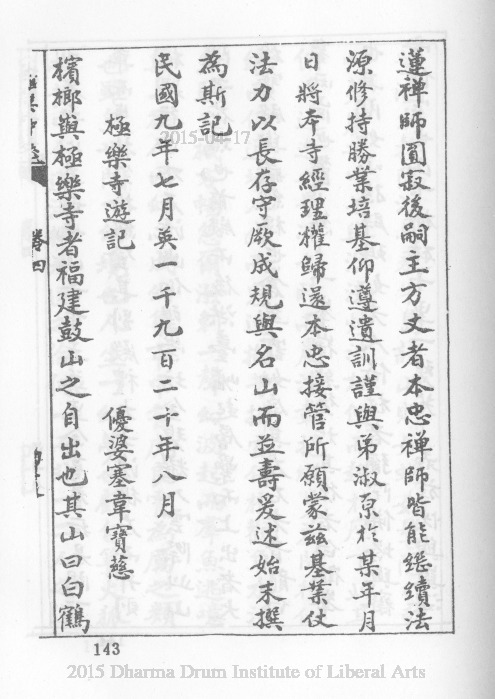 蓮禪師圓寂後嗣主方丈者本忠禪師皆能繼續法
源修持勝業培基仰遵遺訓謹與弟淑原於某年月
日將本寺經理權歸還本忠接管所願蒙茲基業仗
法力以長存守厥成規與名山而並壽爰述始末撰
為斯記
民國九年七月英一千九百二十年八月
極樂寺遊記
優婆塞韋寶慈
檳榔與極樂寺者福建鼓山之自出也其山曰白鶴
卷四
143
2015-04-17
2015 Dharma Drum Institute of Liberal Arts